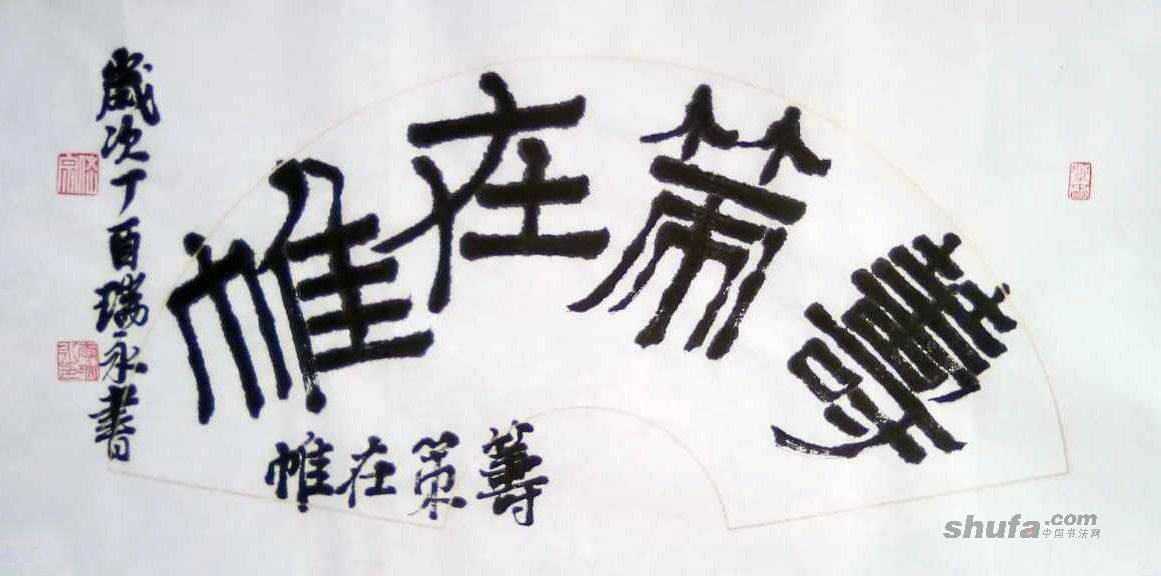 籌策在帷
籌策在帷
歲次丁酉瑞永書
shufa.com
中国书法网